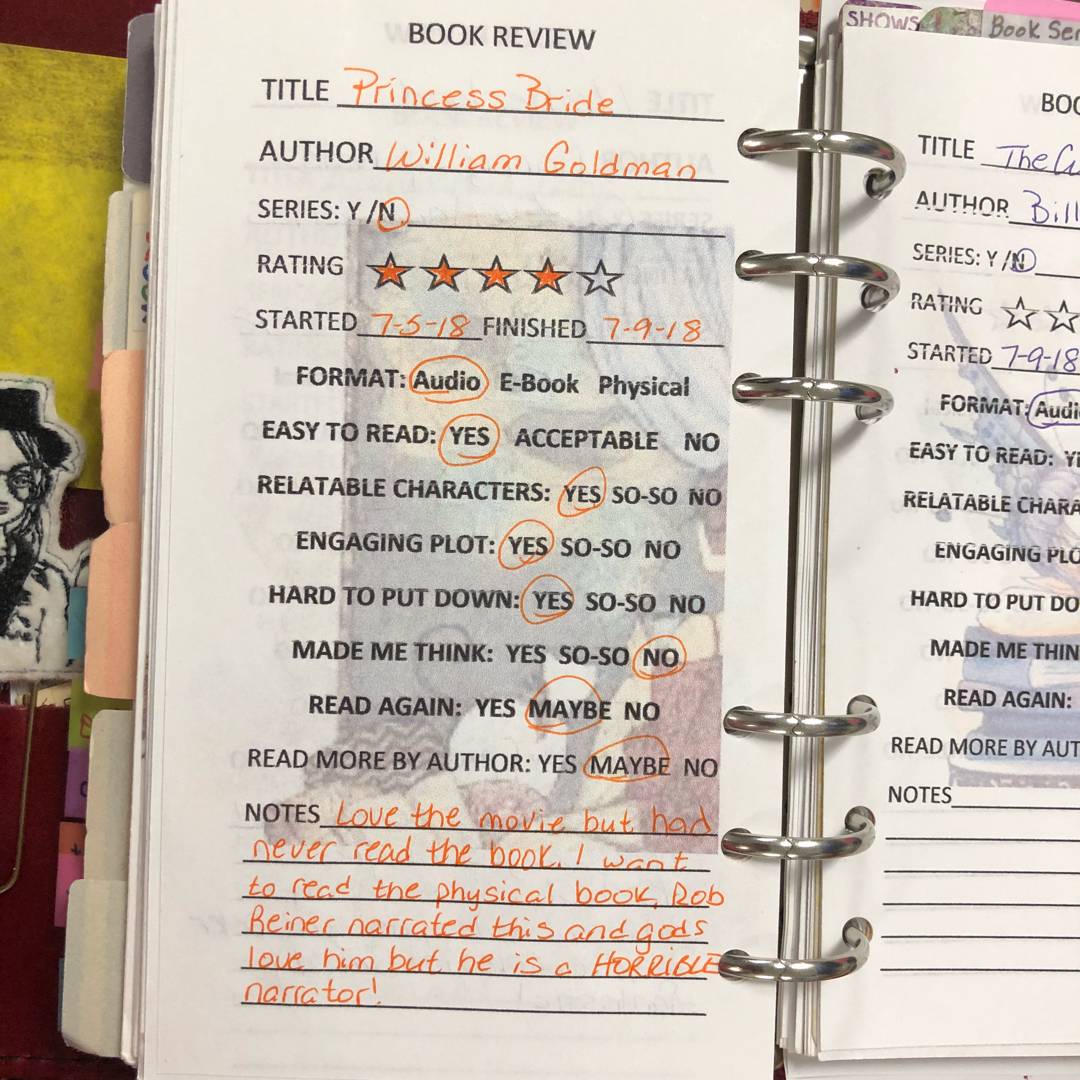 BOOK REVIEW
TITLE Princess Bride
AUTHOR William Goldman
SERIES: Y / N
RATING
STARTED 7-5-18 FINISHED 7-9-18
FORMAT: Audio E-Book Physical
EASY TO READ: YES ACCEPTABLE NO
RELATABLE CHARACTERS: YES SO-SO NO
ENGAGING PLOT: YES SO-SO NO
HARD TO PUT DOWN: YES SO-SO NO
MADE ME THINK: YES SO-SO NO
READ AGAIN: YES MAYBE NO
READ MORE BY AUTHOR: YES MAYBE NO
NOTES Love the movie but had
never read the book. I want
to read the physical book, Rob
Reiner narrated this and gods
love him but he is a HORRIBLE
narrator!
SHOWS
Book Ser
BOO
TITLE The
AUTHOR Bill
SERIES: Y / N
RATING
STARTED 7-9-18
FORMAT: Audi
EASY TO READ: YE
RELATABLE CHARA
ENGAGING PLO
HARD TO PUT DO
MADE ME THIN
READ AGAIN:
READ MORE BY AUT
NOTES